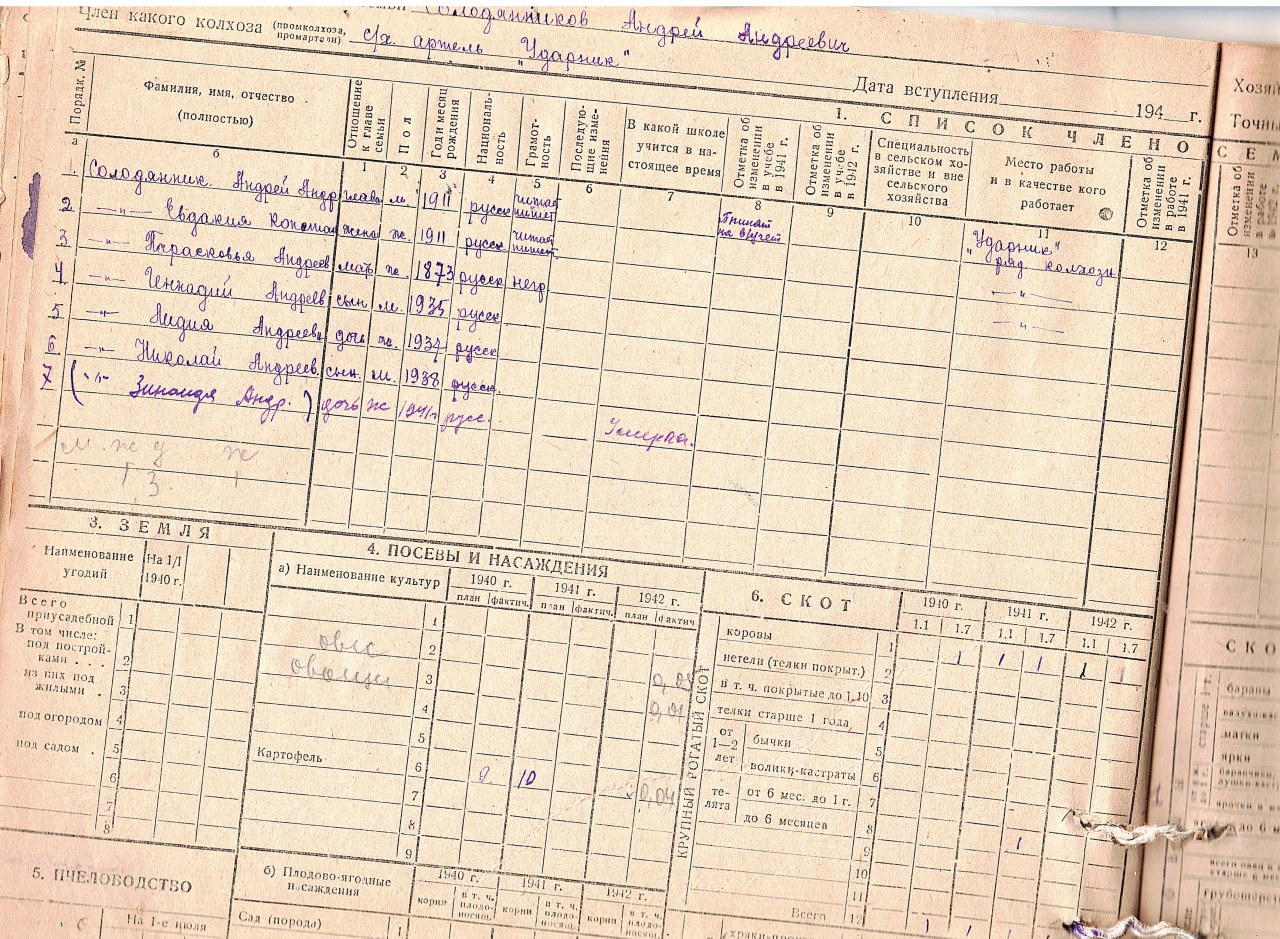 Солодянников Андрей Андреевич
Член какого колхоза (промколхоза, промартели) с/х. артель "Ударник"
Дата вступления 194 г.
1. СПИСОК ЧЛЕНО
Порядк. №
Фамилия, имя, отчество (полностью)
Отношение к главе семьи
Пол
Год и месяц рождения
Националь-ность
Грамот-ность
Последую-щие изме-нения
В какой школе учится в на-стоящее время
Отметка об изменении в учебе в 1941 г.
Отметка об изменении в учебе в 1942 г.
Специальность в сельском хо-зяйстве и вне сельского хозяйства
Место работы и в качестве кого работает
Отметка об изменении в работе в 1941 г.
а б 1 2 3 4 5 6 7 8 9 10 11 12
1. Солодянник. Андрей Андр глава м. 1911 русск читает пишет "Ударник" ряд колхозн
2 —"— Евдакия Констан жена ж. 1911 русск читает пишет —"—
3 —"— Парасковья Андреев мать ж. 1873 русск негр —"—
4 —"— Геннадий Андреев сын м. 1935 русск
5 —"— Лидия Андреевн дочь ж. 1937 русск
6 —"— Николай Андреев. сын. м. 1938 русск.
7 ( —"— Зинаида Андр. ) дочь ж 1941г русс. Умерла.
м. ж д ж
3. ЗЕМЛЯ
Наименование угодий
На 1/I 1940 г.
Всего приусадебной 1
В том числе:
под построй-ками . . . 2
из них под жилыми . 3
под огородом 4
под садом . 5
6
7
8
5. ПЧЕЛОВОДСТВО
На 1-е июля
4. ПОСЕВЫ И НАСАЖДЕНИЯ
а) Наименование культур
1940 г. 1941 г. 1942 г.
план фактич. план фактич. план фактич
1
овес 2
овощи 3
4 0,01
5
Картофель 6 10
7 0,04
8
9
б) Плодово-ягодные насаждения
1940 г. 1941 г. 1942 г.
корни в т. ч. плодо-носящ. корни в т. ч. плодо-носящ. корни в т. ч. плодо-носящ.
Сад (порода) 1
6. СКОТ
1940 г. 1941 г. 1942 г.
1.1 1.7 1.1 1.7 1.1 1.7
КРУПНЫЙ РОГАТЫЙ СКОТ
коровы 1 1 1 1 1 1
нетели (телки покрыт.) 2
в т. ч. покрытые до 1.10 3
телки старше 1 года 4
от 1—2 лет
бычки 5
волики-кастраты 6
те-лята
от 6 мес. до 1 г. 7
до 6 месяцев 8
9 1
10
11
Всего 12
Хозяй
Точны
СЕМ
Отметка об изменении в работе в 1942 г.
13
СКО
старше 1 г.
бараны
матки
ярки